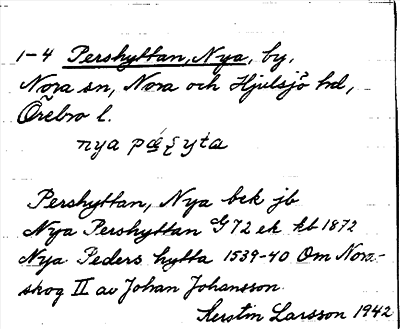 1-4 Pershyttan, Nya, by,
Nora sn, Nora och Hjulsjö hd,
Örebro l.
nya
Pershyttan, Nya bek jb
Nya Pershyttan G72 ek kb 1872
Nya Peders hytta 1539-40 Om Nora-
skog II av Johan Johansson
Kerstin Larsson 1942